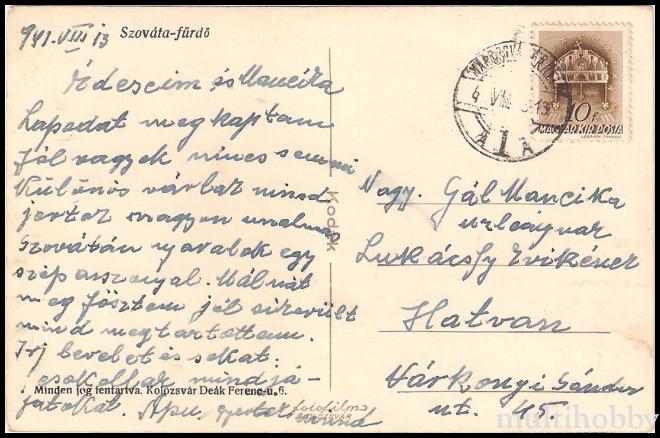 941.VIII 13
Szováta-fürdő
Édeseim és Mancika
Lapodat megkaptam
jól vagyok nincs semmi
Különös várlak mind
jertek nagyon unalmas
Szovátán nyaralok egy
szép asszonyal. Málnát
meg főztem jól sikerült
mind megtartottam.
Irj levelet és sokat.
csokollak mind já-
jatokat. Apu
Minden jog fentartva. Kolozsvár Deák Ferenc-u. 6.
fotofilm
KOLOZSVÁR
Kodak
MAGYAR KIR. POSTA
10 f
Nagy. Gál Mancika
urleánynak
Lukácsfy Evikénél
Hatvan
Várkonyi Sándor
ut. 45.
multihobby